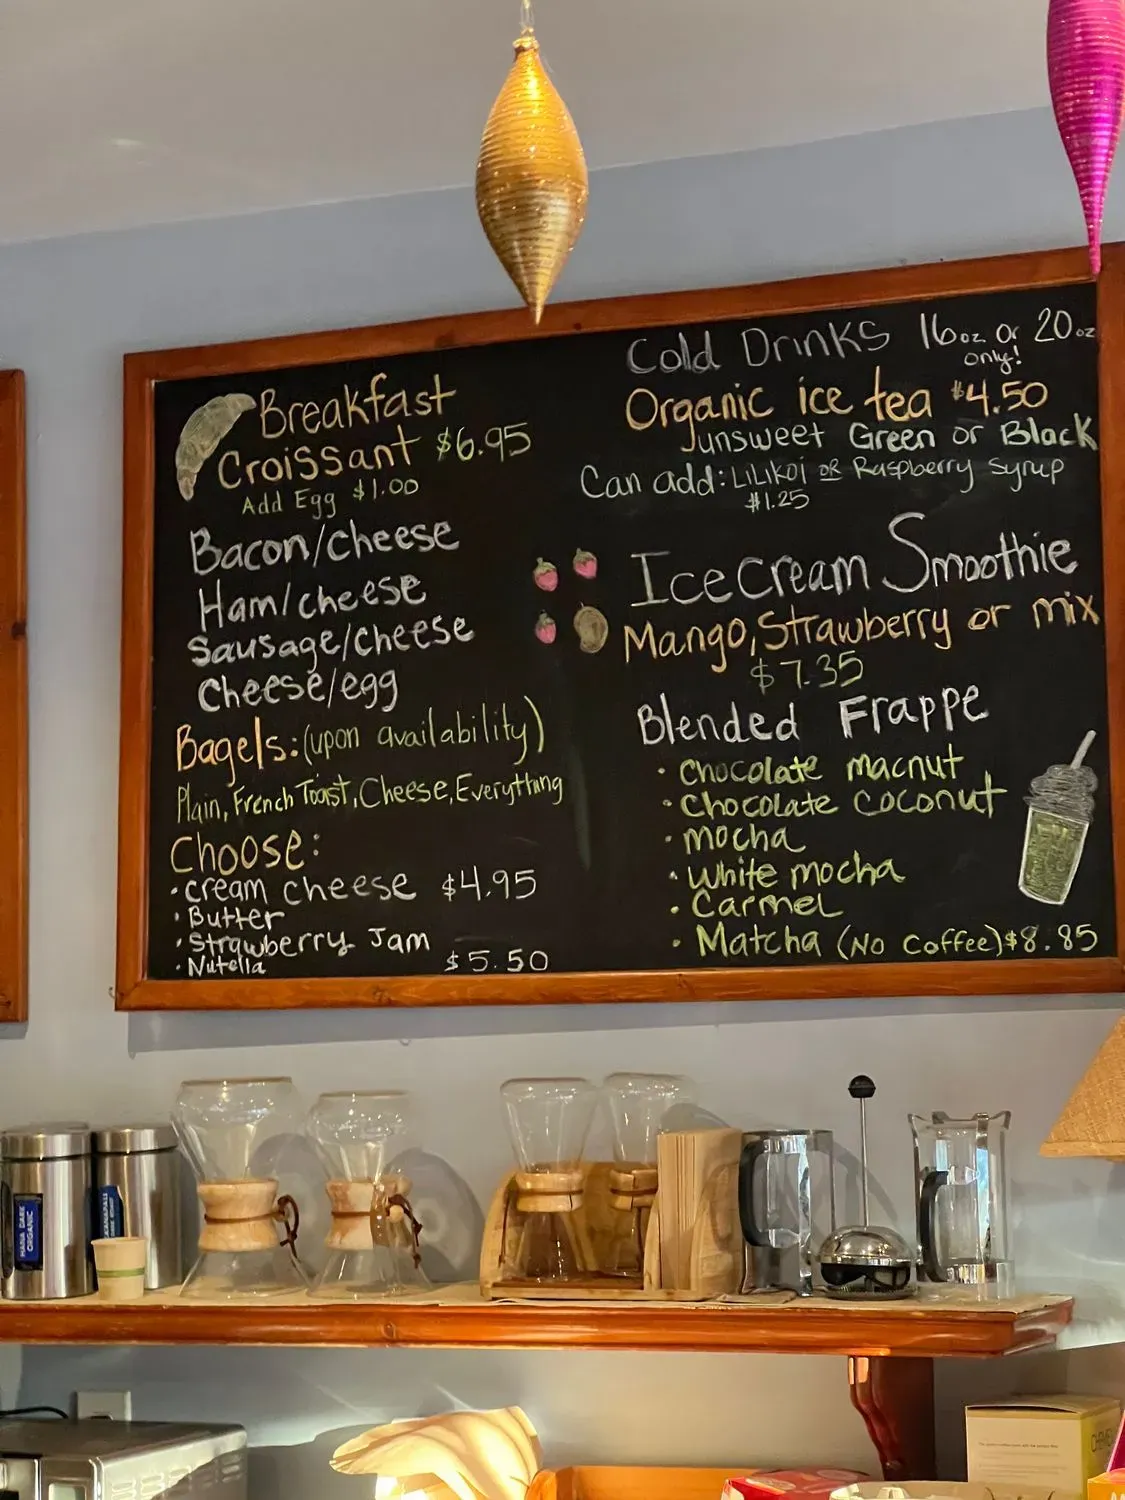 Breakfast
Croissant $6.95
Add Egg $1.00
Bacon/cheese
Ham/cheese
Sausage/cheese
Cheese/egg
Bagels: (upon availability)
Plain, French Toast, Cheese, Everything
Choose:
• cream cheese $4.95
• Butter
• Strawberry Jam
• Nutella $5.50
Cold Drinks 16oz or 20oz
only!
Organic ice tea $4.50
unsweet Green or Black
Can add: LiLiKoi or Raspberry Syrup
$1.25
Ice Cream Smoothie
Mango, Strawberry or mix
$7.35
Blended Frappe
• Chocolate macnut
• Chocolate coconut
• mocha
• White mocha
• Carmel
• Matcha (No Coffee) $8.85
ORGANIC